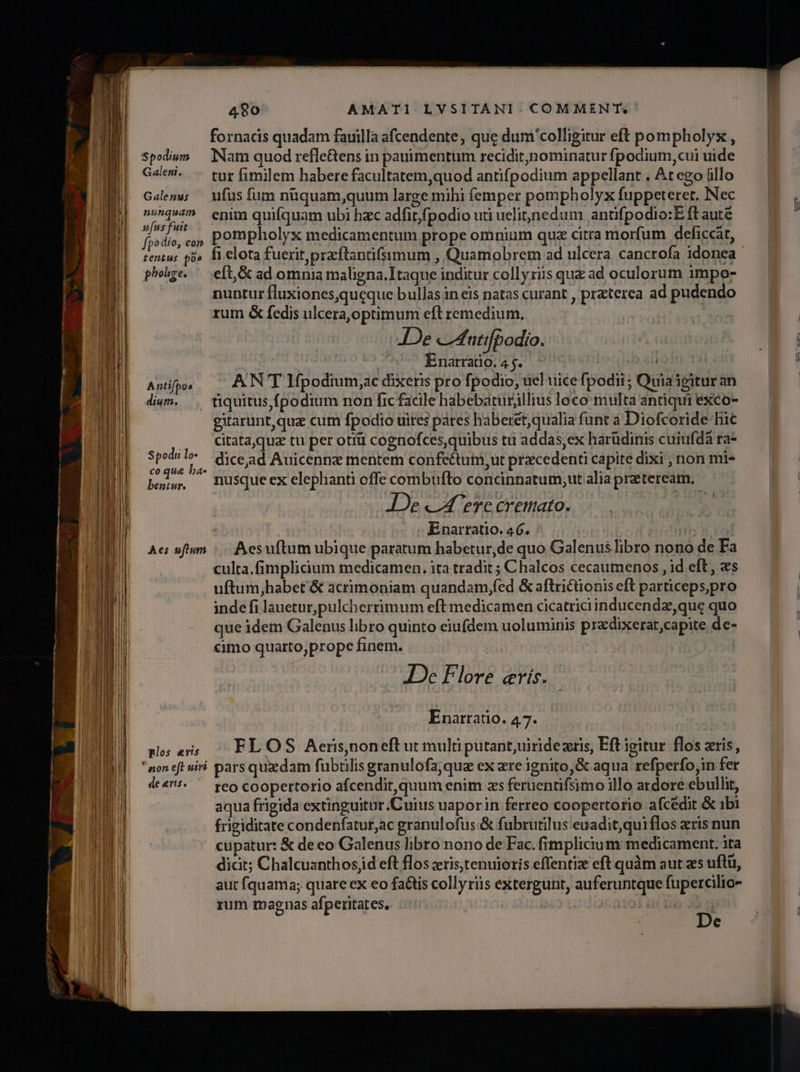 480 AMATI LVSITANI COMMENT.
fornacis quadam fauilla aſcendente, que dum colligitur eſt pompholyx,
Spodium Nam quod reflectens in pauimentum recidit,nominatur ſpodium,cui uide
Galeni. tur ſimilem habere facultatem,quod antiſpodium appellant. At ego illo
Galenus uſus ſum nũquam,quum large mihi ſemper pompholyx ſuppeteret. Nec
nunquam enim quiſquam ubi hæc adſit,ſpodio uti uelit,nedum antiſpodio:Eſt autẽ
uſus fuit
ſpodio, con pompholyx medicamentum prope omnium quæ citra morſum deſiccãt,
tentus põ ſi elota fuerit,præſtantiſsimum, Quamobrem ad ulcera cancroſa idonea
pholige. eſt,& ad omnia maligna.Itaque inditur collyriis quæ ad oculorum impo-
nuntur fluxiones,queque bullas in eis natas curant, præterea ad pudendo
rum & ſedis ulcera,optimum eſt remedium.
De Antiſpodio.
Enarratio. 45.
Antiſpo ANT Iſpodium,ac dixeris pro ſpodio, uel uice ſpodii; Quia igitur an
dium. tiquitus,ſpodium non ſic facile habebatur,illius loco multa antiqui exco-
gitarunt,quæ cum ſpodio uires pares haberẽt,qualia ſunt a Dioſcoride hic
citata,quæ tu per otiũ cognoſces,quibus tu addas,ex harũdinis cuiuſdã ra-
Spodii lo- dice,ad Auicennæ mentem confectum,ut præcedenti capite dixi, non mi-
co quæ ha-
bentur. nusque ex elephanti oſſe combuſto concinnatum,ut alia præteream.
De Aere cremato.
Enarratio. 46.
Aes uſtum Aes uſtum ubique paratum habetur,de quo Galenus libro nono de Fa
culta.ſimplicium medicamen. ita tradit; Chalcos cecautmenos, id eſt, æs
uſtum,habet & acrimoniam quandam,ſed & aſtrictionis eſt particeps,pro
inde ſi lauetur,pulcherrimum eſt medicamen cicatrici inducendæ,que quo
que idem Galenus libro quinto eiuſdem uoluminis prædixerat,capite de-
cimo quarto,prope finem.
De Flore æris.
Enarratio. 47.
Flos æris FLOS Aeris,non eſt ut multi putant,uiride æris, Eſt igitur flos æris,
non eſt uiri pars quædam ſubtilis granuloſa,quæ ex ære ignito,& aqua reſperſo,in fer
de æris. reo coopertorio aſcendit,quum enim æs feruentiſsimo illo ardore ebullit,
aqua frigida extinguitur.Cuius uapor in ferreo coopertorio aſcẽdit & ibi
frigiditate condenſatur,ac granuloſus & ſubrutilus euadit,qui flos æris nun
cupatur: & de eo Galenus libro nono de Fac. ſimplicium medicament. ita
dicit; Chalcuanthos,id eſt flos æris,tenuioris eſſentiæ eſt quàm aut æs uſtũ,
aut ſquama; quare ex eo factis collyriis extergunt, auferuntque ſupercilio-
rum magnas aſperitates.
De